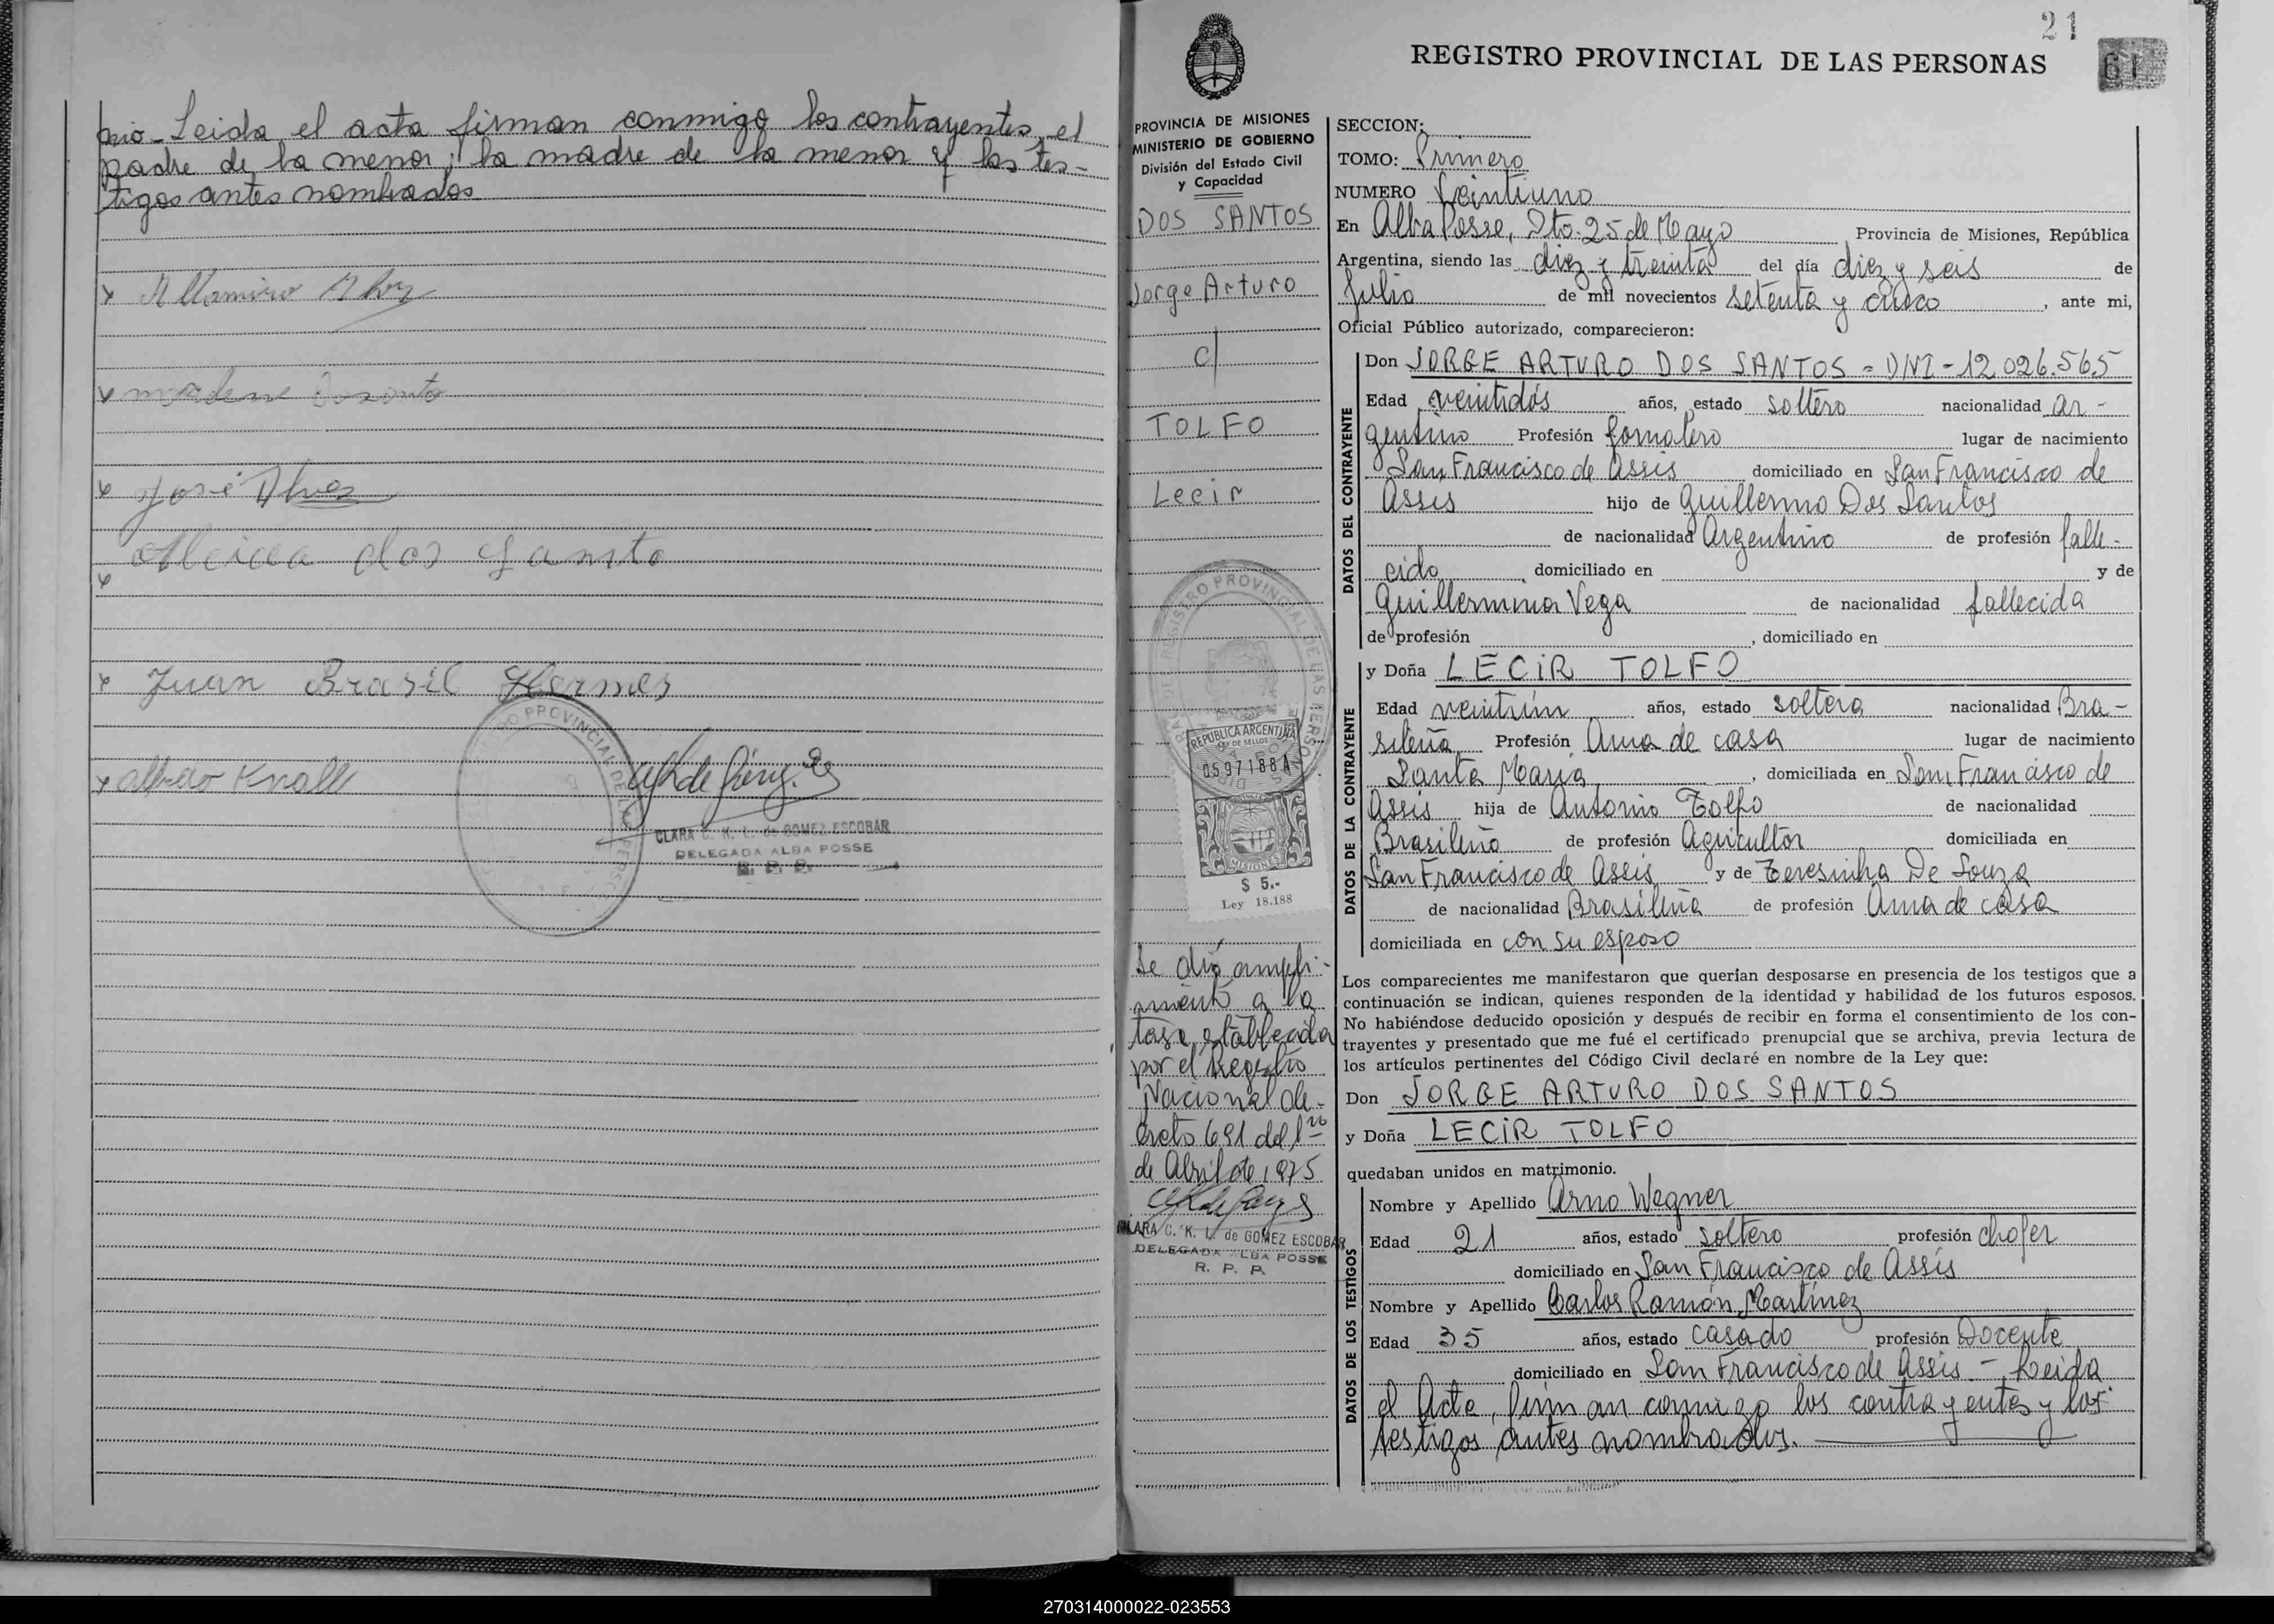 nio - Leida el acta firman conmigo los contrayentes, el
padre de la menor, la madre de la menor y los tes-
tigos antes nombrados
José Alvez
dos Santo
Juan Brasil Hermes
CLARA C. K. L. de GOMEZ ESCOBAR
DELEGADA ALBA POSSE
R. P. P.
21
REGISTRO PROVINCIAL DE LAS PERSONAS
61
PROVINCIA DE MISIONES
MINISTERIO DE GOBIERNO
División del Estado Civil
y Capacidad
DOS SANTOS
Jorge Arturo
c/
TOLFO
Lecir
REPUBLICA ARGENTINA
LEY DE SELLOS
0597188A
MISIONES
$ 5.-
Ley 18.188
Se dió cumpli-
miento a la
tasa establecida
por el Registro
Nacional de-
creto 691 del 1ro
de Abril de 1975
CLARA C. K. L. de GOMEZ ESCOBAR
DELEGADA ALBA POSSE
R. P. P.
SECCION:
TOMO: Primero
NUMERO Veintiuno
En Alba Posse, Dto. 25 de Mayo Provincia de Misiones, República
Argentina, siendo las diez y treinta del día diez y seis de
Julio de mil novecientos setenta y cinco, ante mi,
Oficial Público autorizado, comparecieron:
DATOS DEL CONTRAYENTE
Don JORGE ARTURO DOS SANTOS = DNI - 12.026.565
Edad veintidós años, estado soltero nacionalidad ar-
gentino Profesión Jornalero lugar de nacimiento
San Francisco de Assis domiciliado en San Francisco de
Assis hijo de Guillermo Dos Santos
de nacionalidad Argentino de profesión falle-
cido, domiciliado en y de
Guillermina Vega de nacionalidad fallecida
de profesión , domiciliado en
DATOS DE LA CONTRAYENTE
y Doña LECIR TOLFO
Edad veintiún años, estado soltera nacionalidad Bra-
sileña Profesión Ama de casa lugar de nacimiento
Santa María, domiciliada en San Francisco de
Assis hija de Antonio Tolfo de nacionalidad
Brasileño de profesión Agricultor domiciliada en
San Francisco de Assis y de Teresinha De Souza
de nacionalidad Brasileña de profesión Ama de casa
domiciliada en con su esposo
Los comparecientes me manifestaron que querían desposarse en presencia de los testigos que a
continuación se indican, quienes responden de la identidad y habilidad de los futuros esposos.
No habiéndose deducido oposición y después de recibir en forma el consentimiento de los con-
trayentes y presentado que me fué el certificado prenupcial que se archiva, previa lectura de
los artículos pertinentes del Código Civil declaré en nombre de la Ley que:
Don JORGE ARTURO DOS SANTOS
y Doña LECIR TOLFO
quedaban unidos en matrimonio.
DATOS DE LOS TESTIGOS
Nombre y Apellido Arno Wegner
Edad 21 años, estado soltero profesión chofer
domiciliado en San Francisco de Assis
Nombre y Apellido Carlos Ramón Martínez
Edad 35 años, estado casado profesión Docente
domiciliado en San Francisco de Assis - Leida
el Acta, firman conmigo los contrayentes y los
testigos antes nombrados.
270314000022-023553